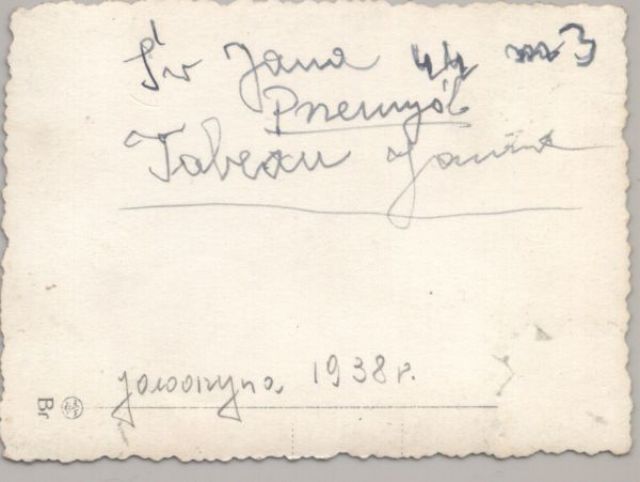 Św Jana 44 m 3
Przemyśl
Tabeau Janina
Jaworzyna 1938 r.
Br